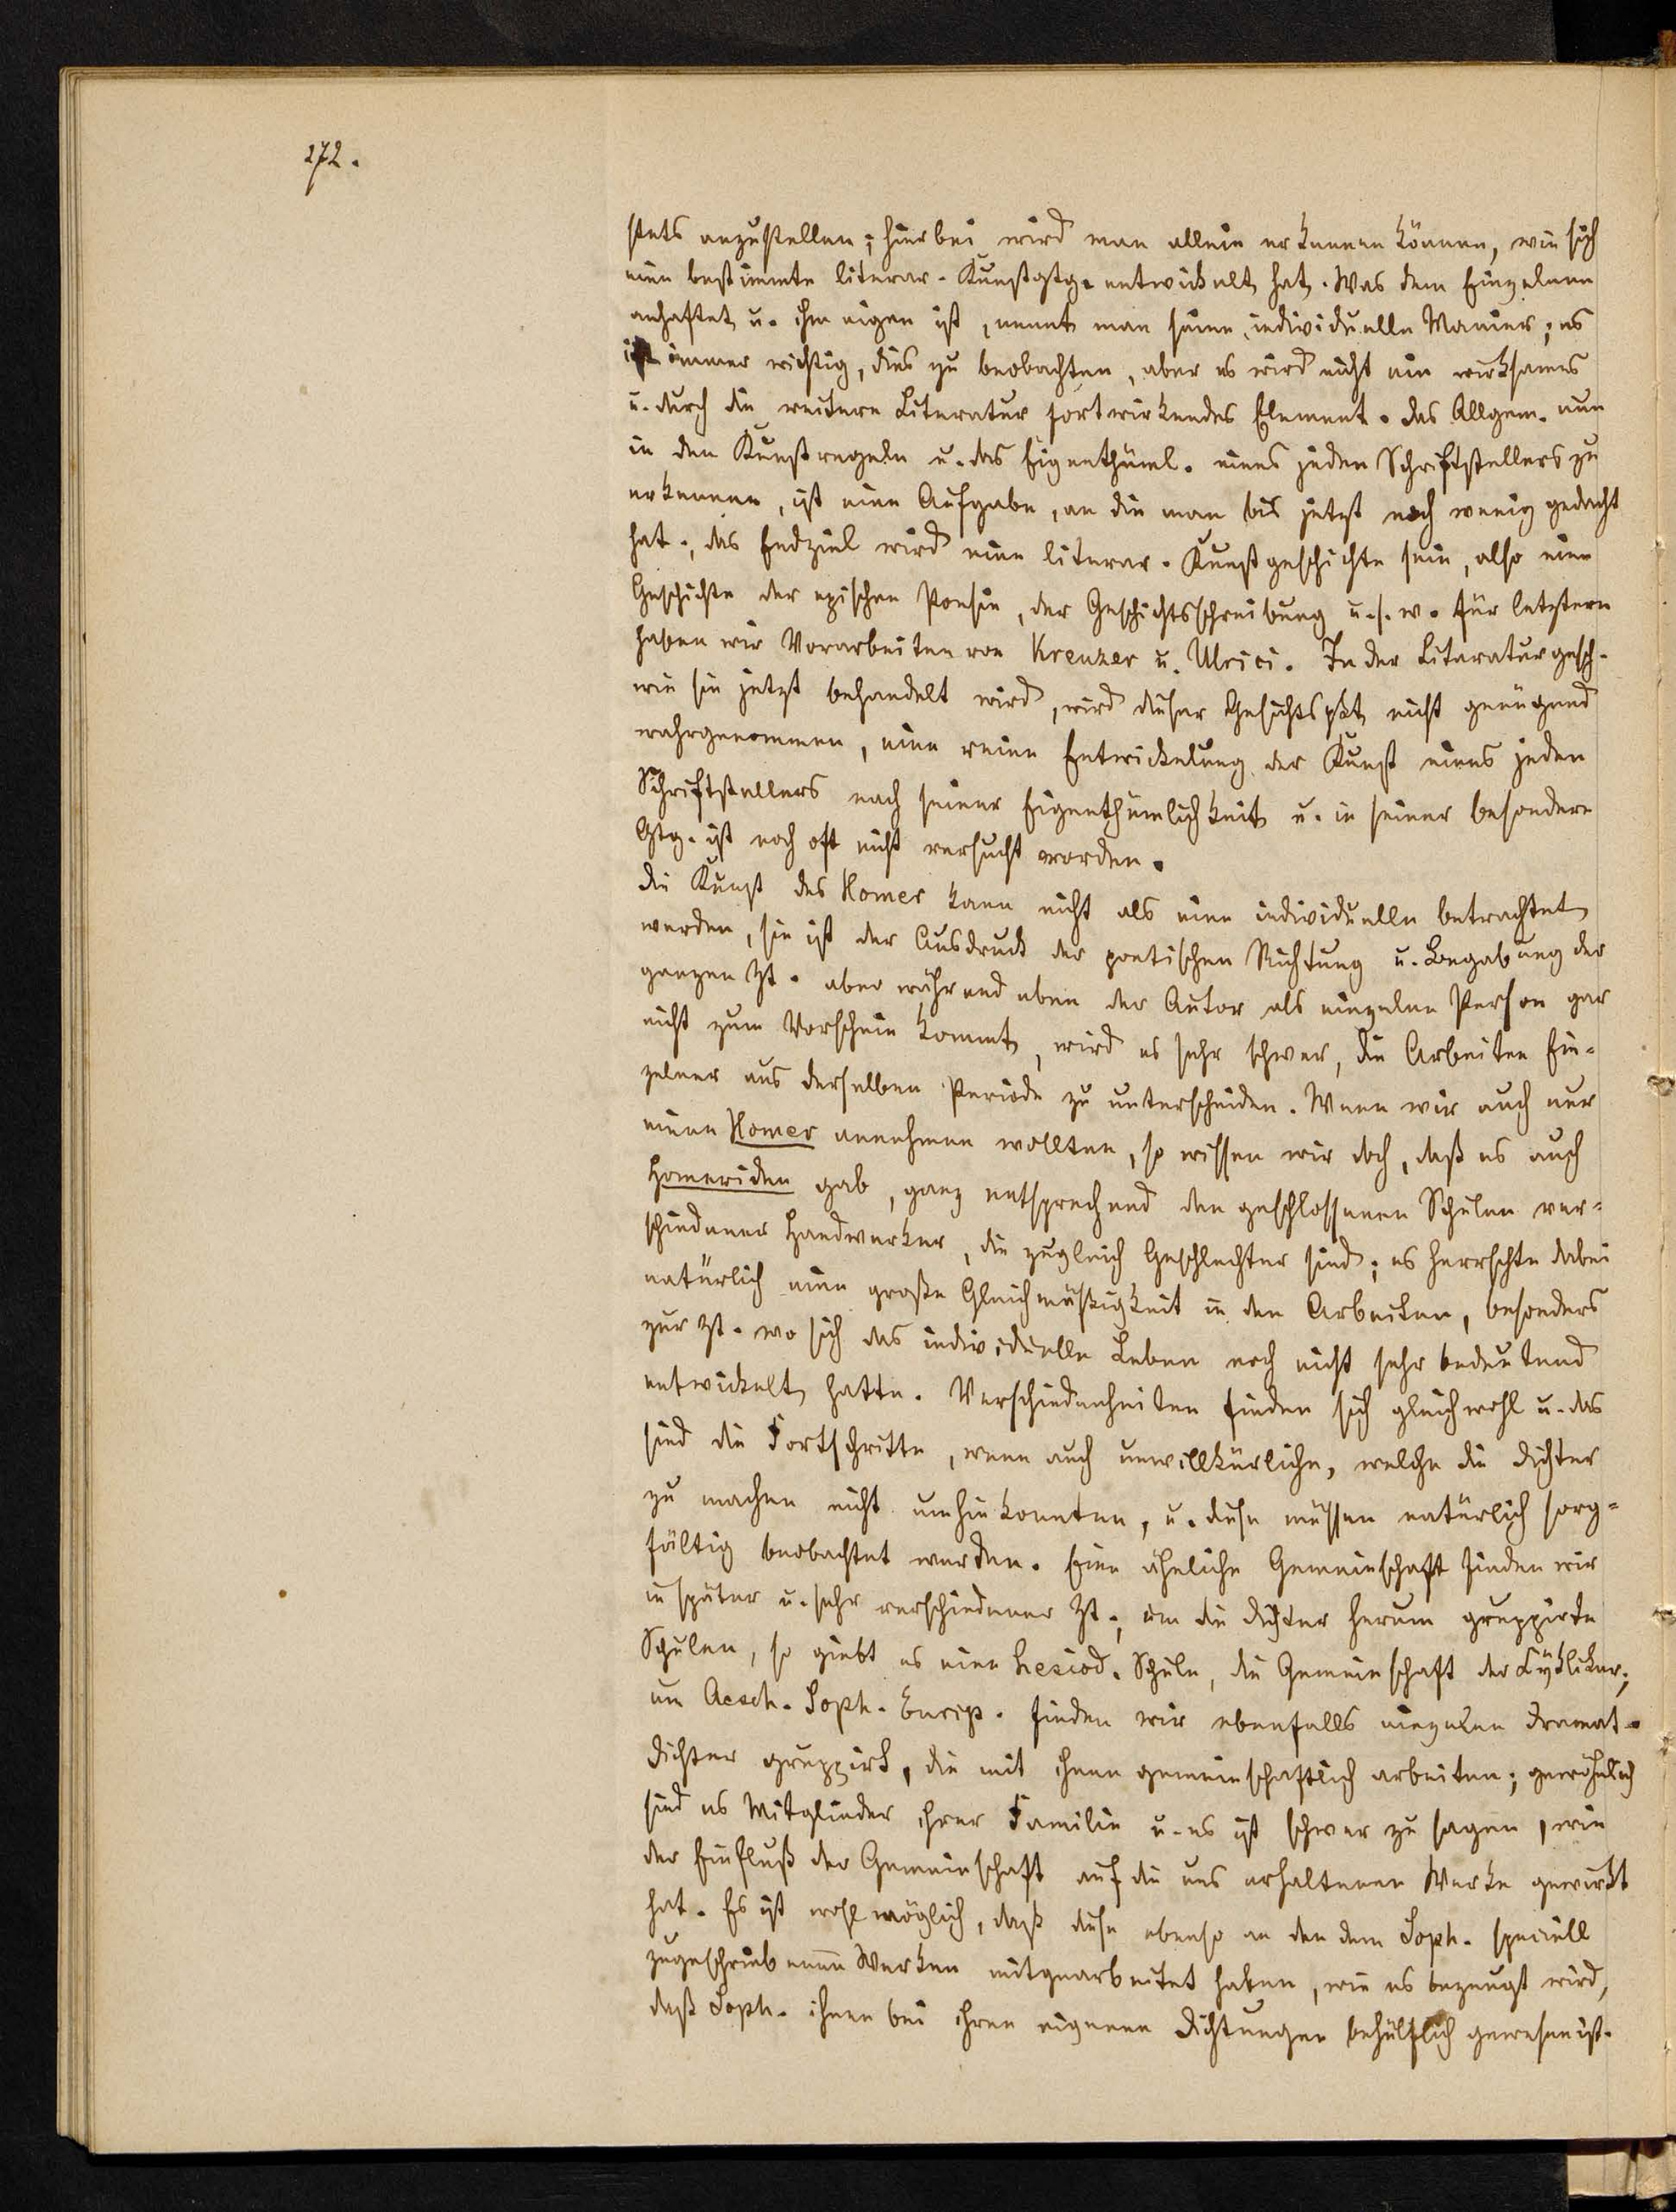 272.
stets anzustellen; hierbei wird man allein erkennen können, wie sich
eine bestimmte literar. Kunstgtg. entwickelt hat. Was dem Einzelnen
anhaftet u. ihm eigen ist, nennt man seine individuelle Manier; es
ist immer wichtig, dies zu beobachten, aber es wird nicht ein wirksames
u. durch die weitere Literatur fortwirkendes Element. das Allgem. nun
in den Kunstregeln u. das Eigenthüml. eines jeden Schriftstellers zu
erkennen, ist eine Aufgabe, an die man bis jetzt noch wenig gedacht
hat., das Endziel wird eine literar. Kunstgeschichte sein, also eine
Geschichte der epischen Poesie, der Geschichtsschreibung u. s. w. für letztere
haben wir Vorarbeiten von Kreuzer u. Ulrici. In der Literaturgesch.
wie sie jetzt behandelt wird, wird dieser Gesichtspkt nicht genügend
wahrgenommen, eine reine Entwickelung der Kunst eines jeden
Schriftstellers nach seiner Eigenthümlichkeit u. in seiner besondern
Gtg. ist noch oft nicht versucht worden.
die Kunst des Homer kann nicht als eine individuelle betrachtet
werden, sie ist der Ausdruck der poetischen Richtung u. Begabung der
ganzen Zt. aber während eben der Autor als einzelne Person gar
nicht zum Vorschein kommt, wird es sehr schwer, die Arbeiten Ein-
zelner aus derselben Periode zu unterscheiden. Wenn wir auch nur
einen Homer annehmen wollten, so wissen wir doch, daß es auch
Homeriden gab, ganz entsprechend den geschlossenen Schulen ver-
schiedener Handwerker, die zugleich Geschlechter sind; es herrschte dabei
natürlich eine große Gleichmäßigkeit in den Arbeiten, besonders
zur Zt. wo sich das individuelle Leben noch nicht sehr bedeutend
entwickelt hatte. Verschiedenheiten finden sich gleichwohl u. das
sind die Fortschritte, wenn auch unwillkürliche, welche die dichter
zu machen nicht umhin konnten, u. diese müssen natürlich sorg-
fältig beobachtet werden. Eine ähnliche Gemeinschaft finden wir
in später u. sehr verschiedener Zt., um die dichter herum gruppirte
Schulen, so giebt es eine hesiod. Schule, die Gemeinschaft der Cykliker;
um Aesch. Soph. Eurip. finden wir ebenfalls einzelne dramat.
dichter gruppirt, die mit ihnen gemeinschaftlich arbeiten; gewöhnlich
sind es Mitglieder ihrer Familie u. es ist schwer zu sagen, wie
der Einfluß der Gemeinschaft auf die uns erhaltenen Werke gewirkt
hat. Es ist wohl möglich, daß diese ebenso an den dem Soph. speciell
zugeschriebenen Werken mitgearbeitet haben, wie es bezeugt wird,
daß Soph. ihnen bei ihren eigenen dichtungen behülflich gewesen ist.